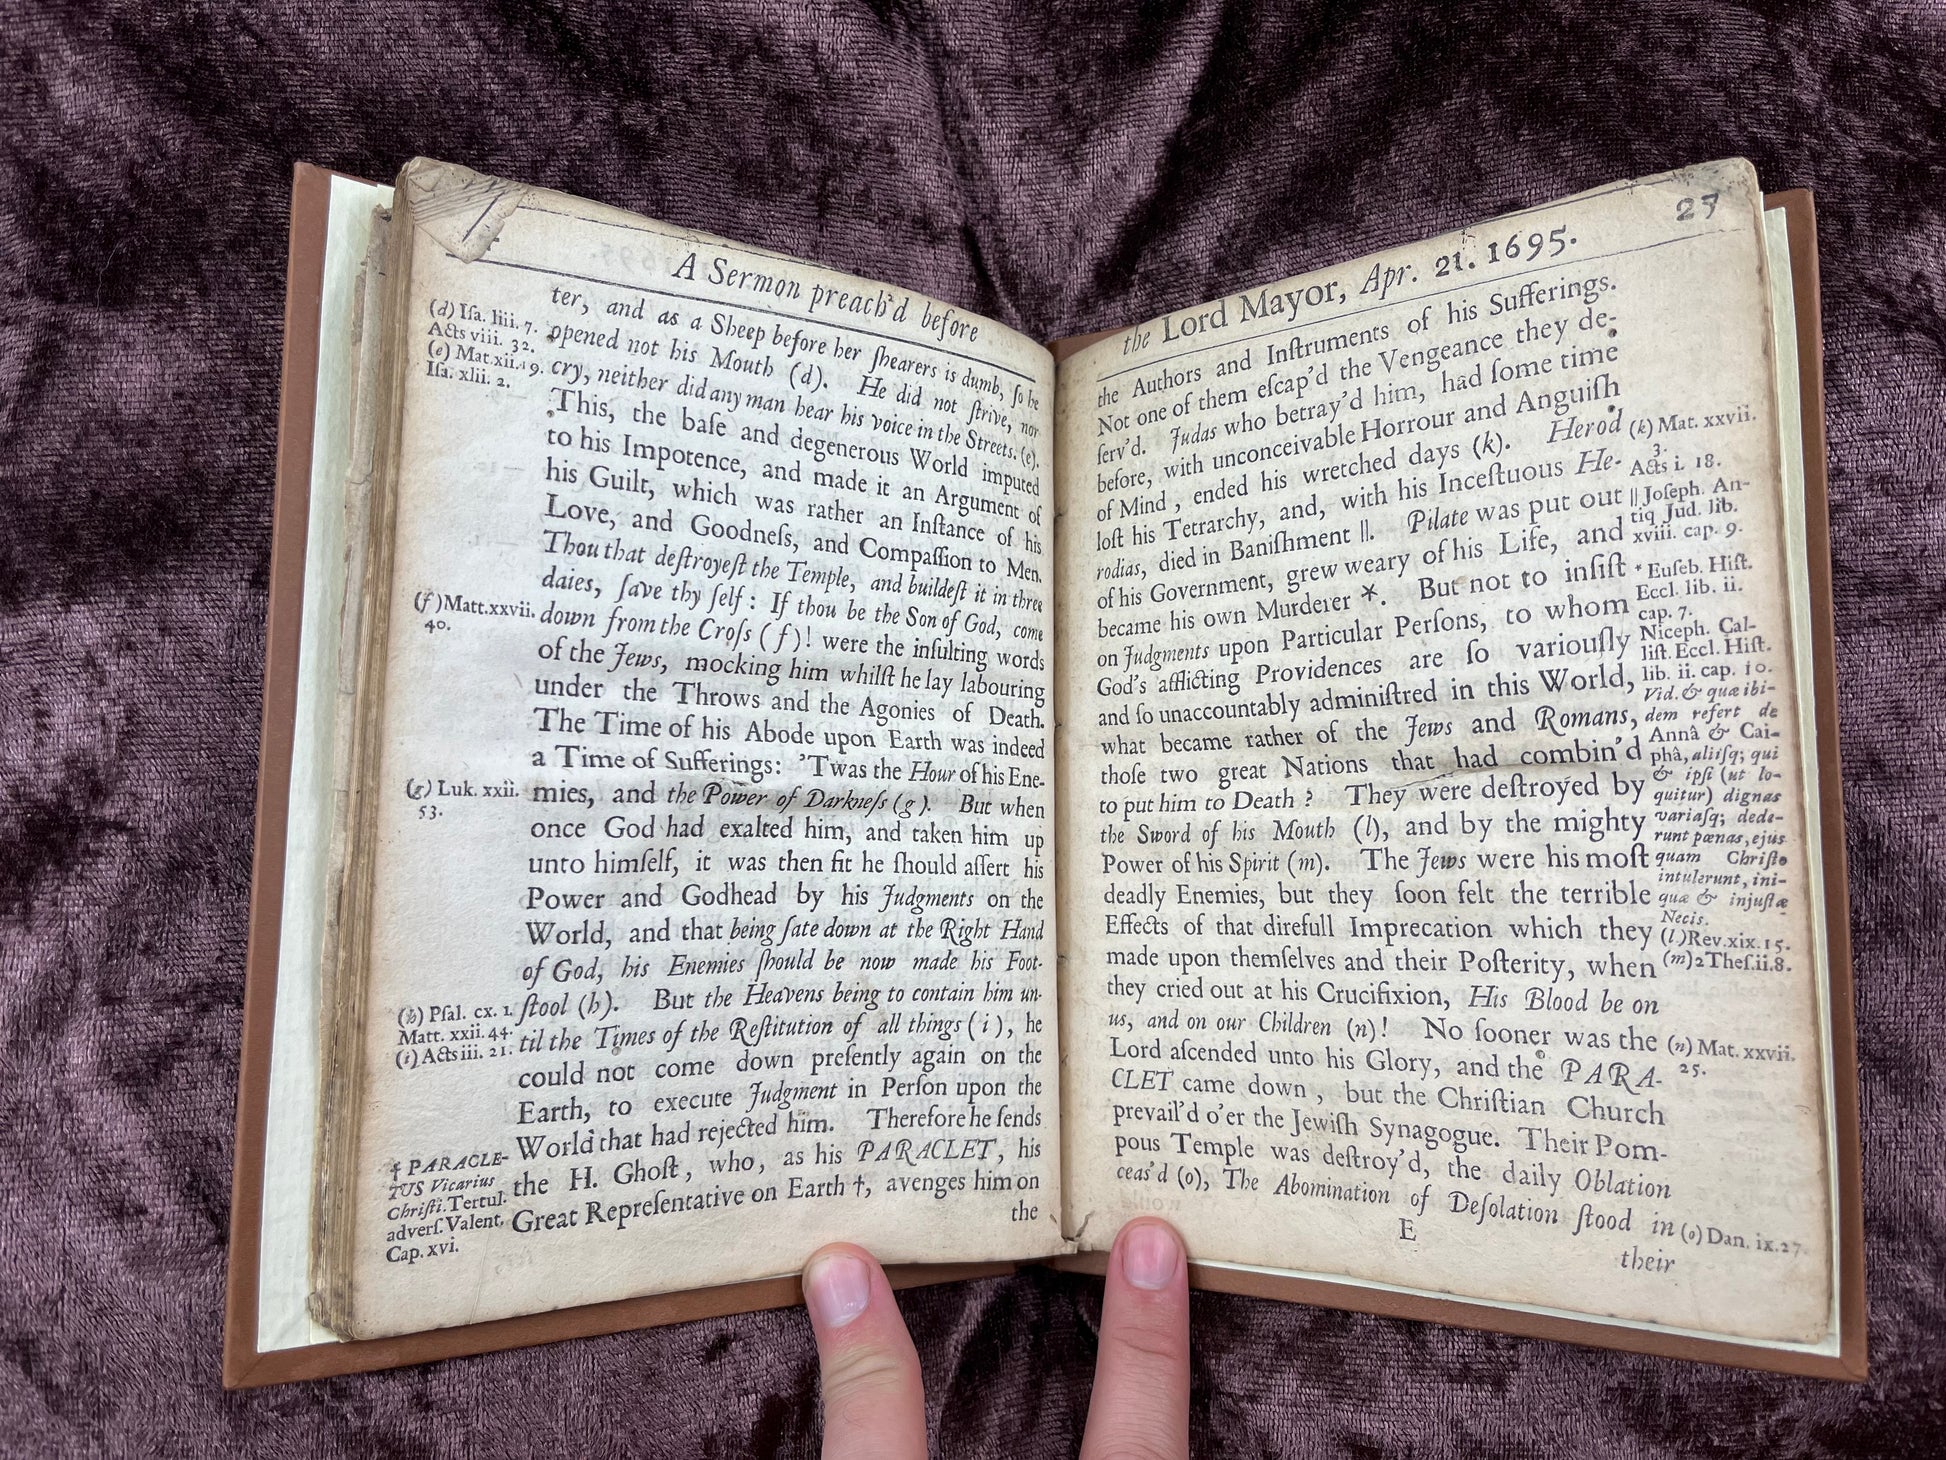 A Sermon preach'd before
(d) Iſa. liii. 7.
Acts viii. 32.
(e) Mat.xii.19.
Iſa. xlii. 2.
ter, and as a Sheep before her ſhearers is dumb, ſo he
opened not his Mouth (d). He did not ſtrive, nor
cry, neither did any man hear his voice in the Streets. (e).
This, the baſe and degenerous World imputed
to his Impotence, and made it an Argument of
his Guilt, which was rather an Inſtance of his
Love, and Goodneſs, and Compaſſion to Men.
Thou that deſtroyeſt the Temple, and buildeſt it in three
daies, ſave thy ſelf: If thou be the Son of God, come
(f)Matt.xxvii.
40.
down from the Croſs (f)! were the inſulting words
of the Jews, mocking him whilſt he lay labouring
under the Throws and the Agonies of Death.
The Time of his Abode upon Earth was indeed
a Time of Sufferings: 'Twas the Hour of his Ene-
(g) Luk. xxii.
53.
mies, and the Power of Darkneſs (g). But when
once God had exalted him, and taken him up
unto himſelf, it was then fit he ſhould aſſert his
Power and Godhead by his Judgments on the
World, and that being ſate down at the Right Hand
of God, his Enemies ſhould be now made his Foot-
(h) Pſal. cx. 1.
Matt. xxii. 44.
(i) Acts iii. 21.
ſtool (h). But the Heavens being to contain him un-
til the Times of the Reſtitution of all things (i), he
could not come down preſently again on the
Earth, to execute Judgment in Perſon upon the
World that had rejected him. Therefore he ſends
† PARACLE-
TUS Vicarius
Chriſti. Tertul.
adverſ. Valent.
Cap. xvi.
the H. Ghoſt, who, as his PARACLET, his
Great Repreſentative on Earth †, avenges him on
the
the Lord Mayor, Apr. 21. 1695.
the Authors and Inſtruments of his Sufferings.
Not one of them eſcap'd the Vengeance they de-
ſerv'd. Judas who betray'd him, had ſome time
before, with unconceivable Horrour and Anguiſh
of Mind, ended his wretched days (k). Herod
loſt his Tetrarchy, and, with his Inceſtuous He-
rodias, died in Baniſhment ||. Pilate was put out
of his Government, grew weary of his Life, and
became his own Murderer *. But not to inſiſt
on Judgments upon Particular Perſons, to whom
God's afflicting Providences are ſo variouſly
and ſo unaccountably adminiſtred in this World,
what became rather of the Jews and Romans,
thoſe two great Nations that had combin'd
to put him to Death? They were deſtroyed by
the Sword of his Mouth (l), and by the mighty
Power of his Spirit (m). The Jews were his moſt
deadly Enemies, but they ſoon felt the terrible
Effects of that direfull Imprecation which they
made upon themſelves and their Poſterity, when
they cried out at his Crucifixion, His Blood be on
us, and on our Children (n)! No ſooner was the
Lord aſcended unto his Glory, and the PARA-
CLET came down, but the Chriſtian Church
prevail'd o'er the Jewiſh Synagogue. Their Pom-
pous Temple was deſtroy'd, the daily Oblation
ceas'd (o), The Abomination of Deſolation ſtood in
E
their
(k) Mat. xxvii.
3.
Acts i. 18.
|| Joſeph. An-
tiq Jud. lib.
xviii. cap. 9.
* Euſeb. Hiſt.
Eccl. lib. ii.
cap. 7.
Niceph. Cal-
liſt. Eccl. Hiſt.
lib. ii. cap. 10.
Vid. & quæ ibi-
dem refert de
Annâ & Cai-
phâ, aliiſq; qui
& ipſi (ut lo-
quitur) dignas
variaſq; dede-
runt pœnas, ejus
quam Chriſto
intulerunt, ini-
quæ & injuſtæ
Necis.
(l)Rev.xix.15.
(m)2Theſ.ii.8.
(n) Mat. xxvii.
25.
(o)Dan. ix.27.